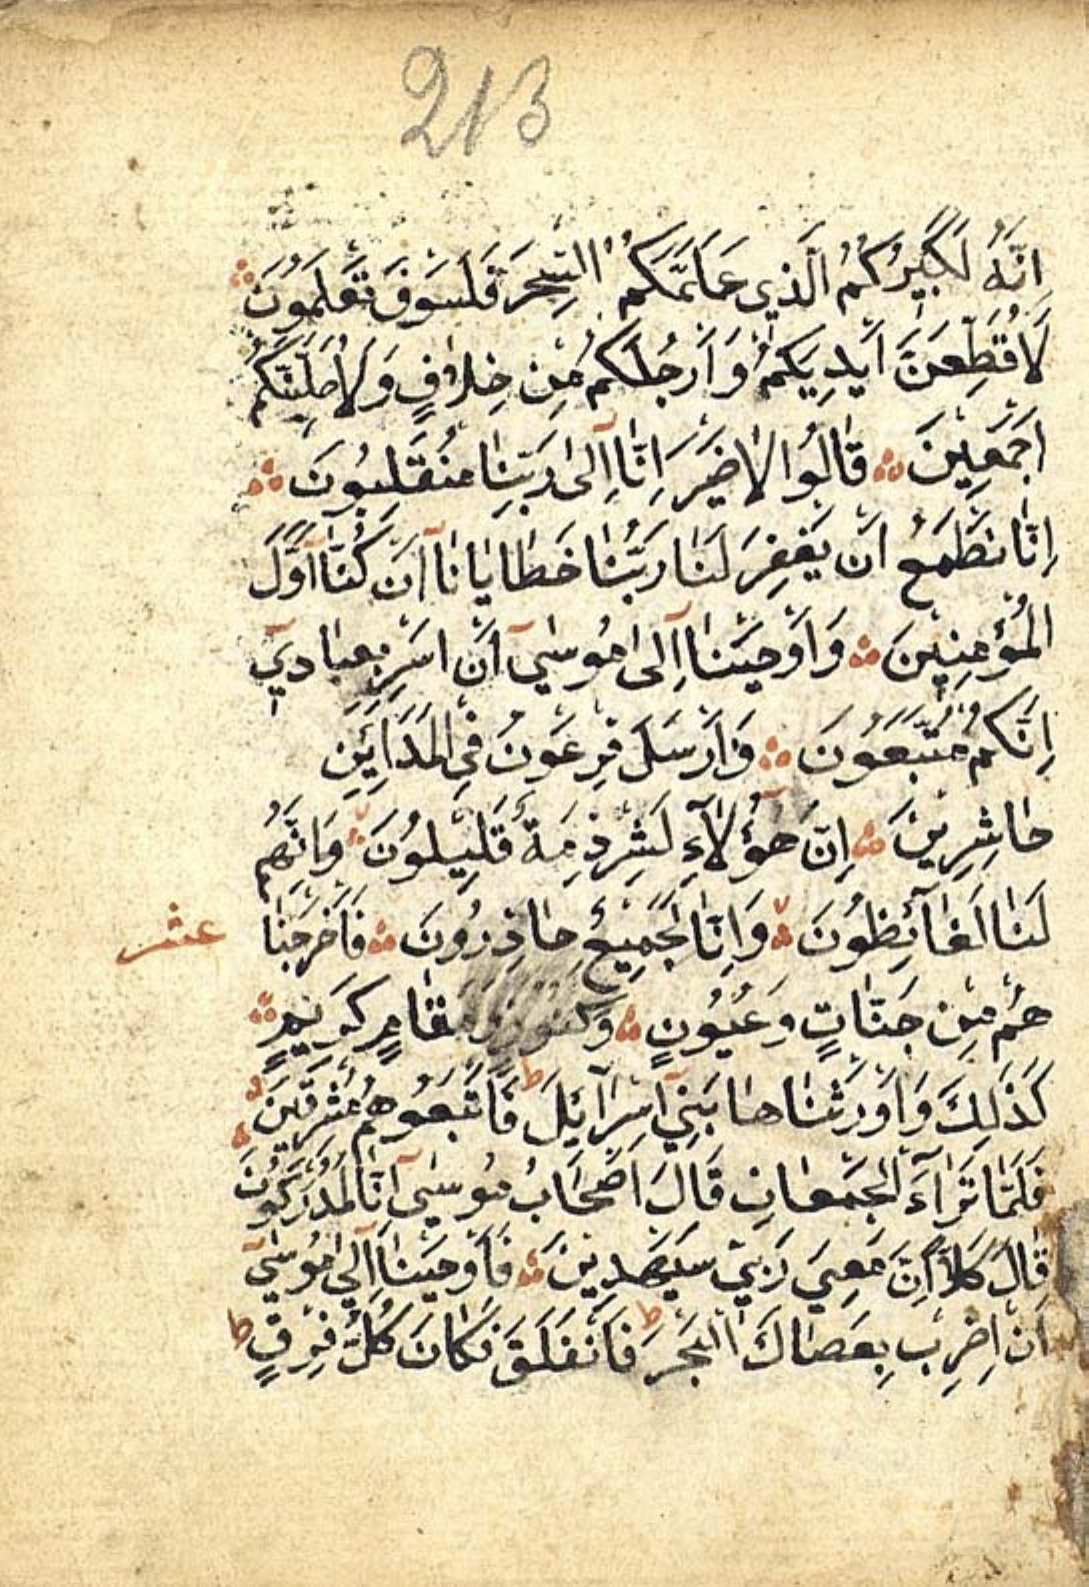 213
اِنَّهُ لَكَبِيرُكُمُ الَّذِي عَلَّمَكُمُ السِّحْرَ فَلَسَوْفَ تَعْلَمُونَ
لَاُقَطِّعَنَّ اَيْدِيَكُمْ وَاَرْجُلَكُمْ مِنْ خِلَافٍ وَلَاُصَلِّبَنَّكُمْ
اَجْمَعِينَ قَالُوا لَاضَيْرَ اِنَّا اِلٰى رَبِّنَا مُنْقَلِبُونَ
اِنَّا نَطْمَعُ اَنْ يَغْفِرَ لَنَا رَبُّنَا خَطَايَانَا اَنْ كُنَّا اَوَّلَ
الْمُؤْمِنِينَ وَاَوْحَيْنَا اِلٰى مُوسٰى اَنْ اَسْرِ بِعِبَادِي
اِنَّكُمْ مُتَّبَعُونَ فَاَرْسَلَ فِرْعَوْنُ فِي الْمَدَائِنِ
حَاشِرِينَ اِنَّ هٰؤُلَاءِ لَشِرْذِمَةٌ قَلِيلُونَ وَاِنَّهُمْ
لَنَا لَغَائِظُونَ وَاِنَّا لَجَمِيعٌ حَاذِرُونَ فَاَخْرَجْنَا
عشر
هُمْ مِنْ جَنَّاتٍ وَعُيُونٍ وَكُنُوزٍ وَمَقَامٍ كَرِيمٍ
كَذٰلِكَ وَاَوْرَثْنَاهَا بَنِي اِسْرَآئِلَ ط فَاَتْبَعُوهُمْ مُشْرِقِينَ
فَلَمَّا تَرَاءَ الْجَمْعَانِ قَالَ اَصْحَابُ مُوسٰى اِنَّا لَمُدْرَكُونَ
قَالَ كَلَّا اِنَّ مَعِيَ رَبِّي سَيَهْدِينِ فَاَوْحَيْنَا اِلٰى مُوسٰى
اَنِ اضْرِبْ بِعَصَاكَ الْبَحْرَ ط فَانْفَلَقَ فَكَانَ كُلُّ فِرْقٍ ط